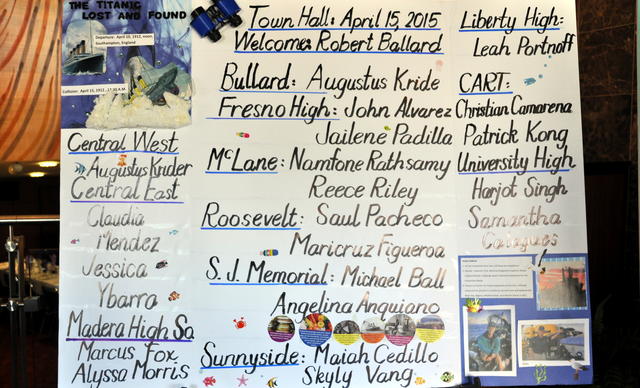 THE TITANIC
LOST AND FOUND
Departure: April 10, 1912, noon.
Southampton, England
Central West
Augustus Krider
Central East
Claudia
Mendez
Jessica
Ybarra
Madera High So
Marcus Fox
Alyssa Morris
Town Hall: April 15, 2015
Welcome: Robert Ballard
Bullard: Augustus Kride
Fresno High: John Alvarez
Jailene Padilla
McLane: Namtone Rathsamy
Reece Riley
Roosevelt: Saul Pacheco
Maricruz Figueroa
S. J. Memorial: Michael Ball
Angelina Anguiano
Sunnyside: Maiah Cedillo
Skyly Vang
Liberty High:
Leah Portnoff
CART:
Christian Camarena
Patrick Kong
University High
Harjot Singh
Samantha